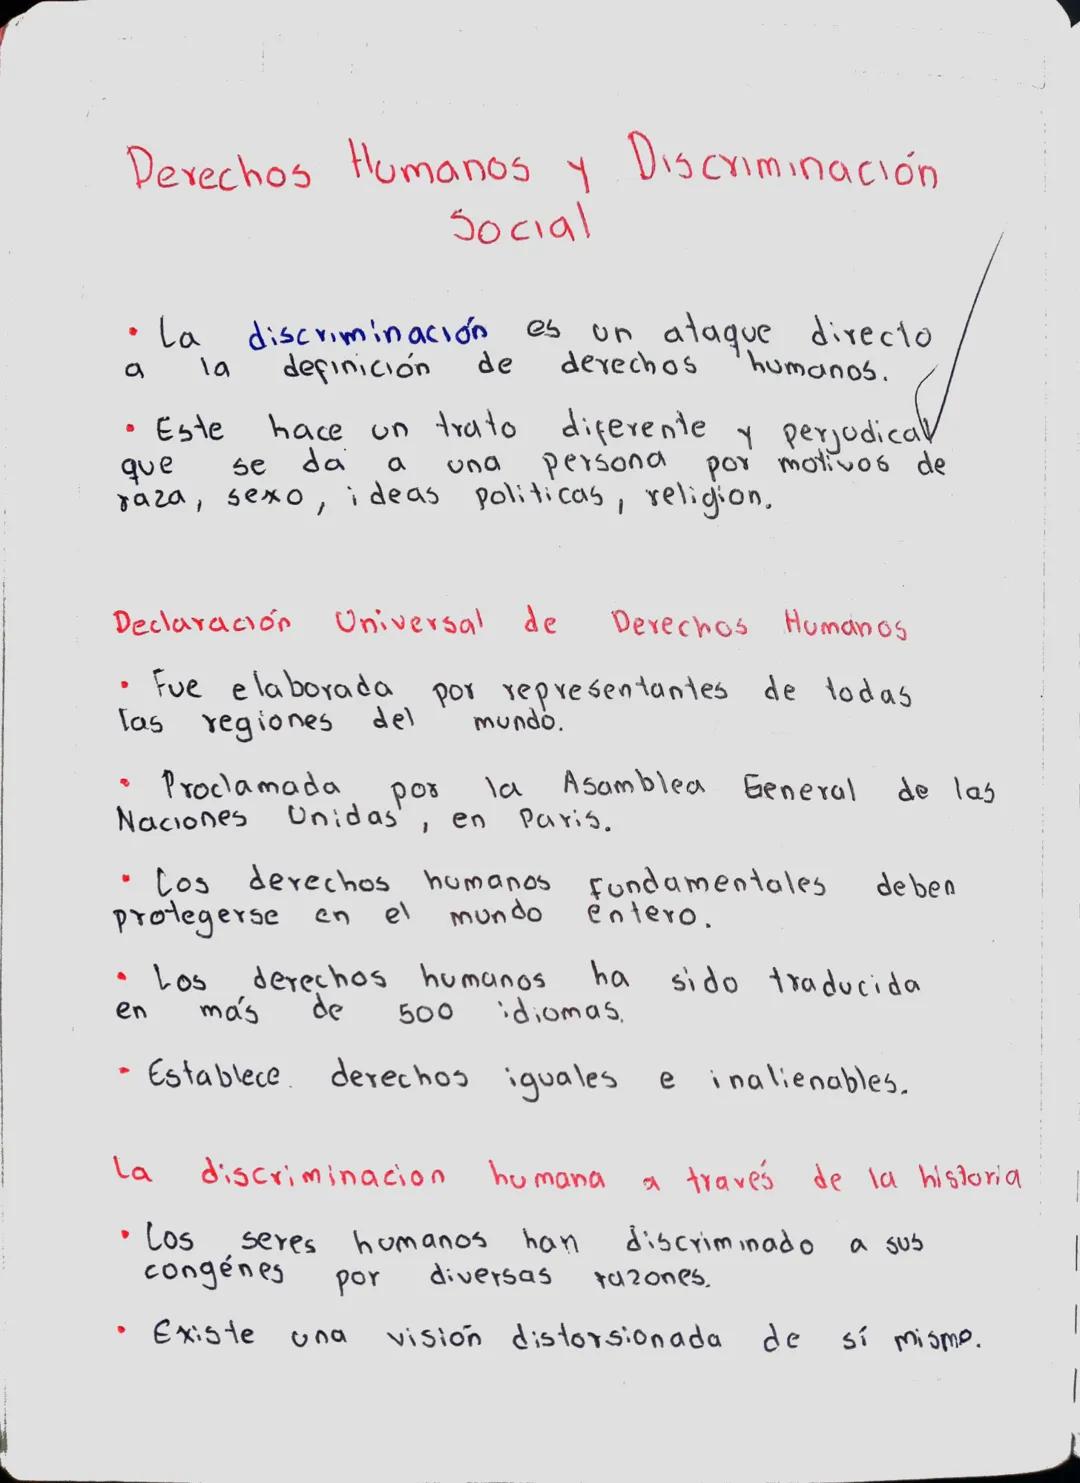 Derechos Humanos y Discriminación
Social
• La discriminación es un ataque directo
a la definición de derechos humanos.
• Este hace un trato diferente y perjudical
que se da a una persona por motivos de
raza, sexo, ideas politicas, religion.
Declaración Universal de Derechos Humanos
• Fue elaborada por representantes de todas
las regiones del mundo.
• Proclamada por la Asamblea General de las
Naciones Unidas, en Paris.
• Los derechos humanos fundamentales deben
protegerse en el mundo entero.
• Los derechos humanos ha sido traducida
en más de 500 idiomas.
• Establece derechos iguales e inalienables.
La discriminacion humana a través de la historia
• Los seres humanos han discriminado a sus
congénes por diversas razones.
• Existe una visión distorsionada de sí mismo.